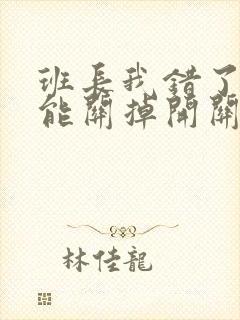 班長我錯了
能關掉開關
林佳龍